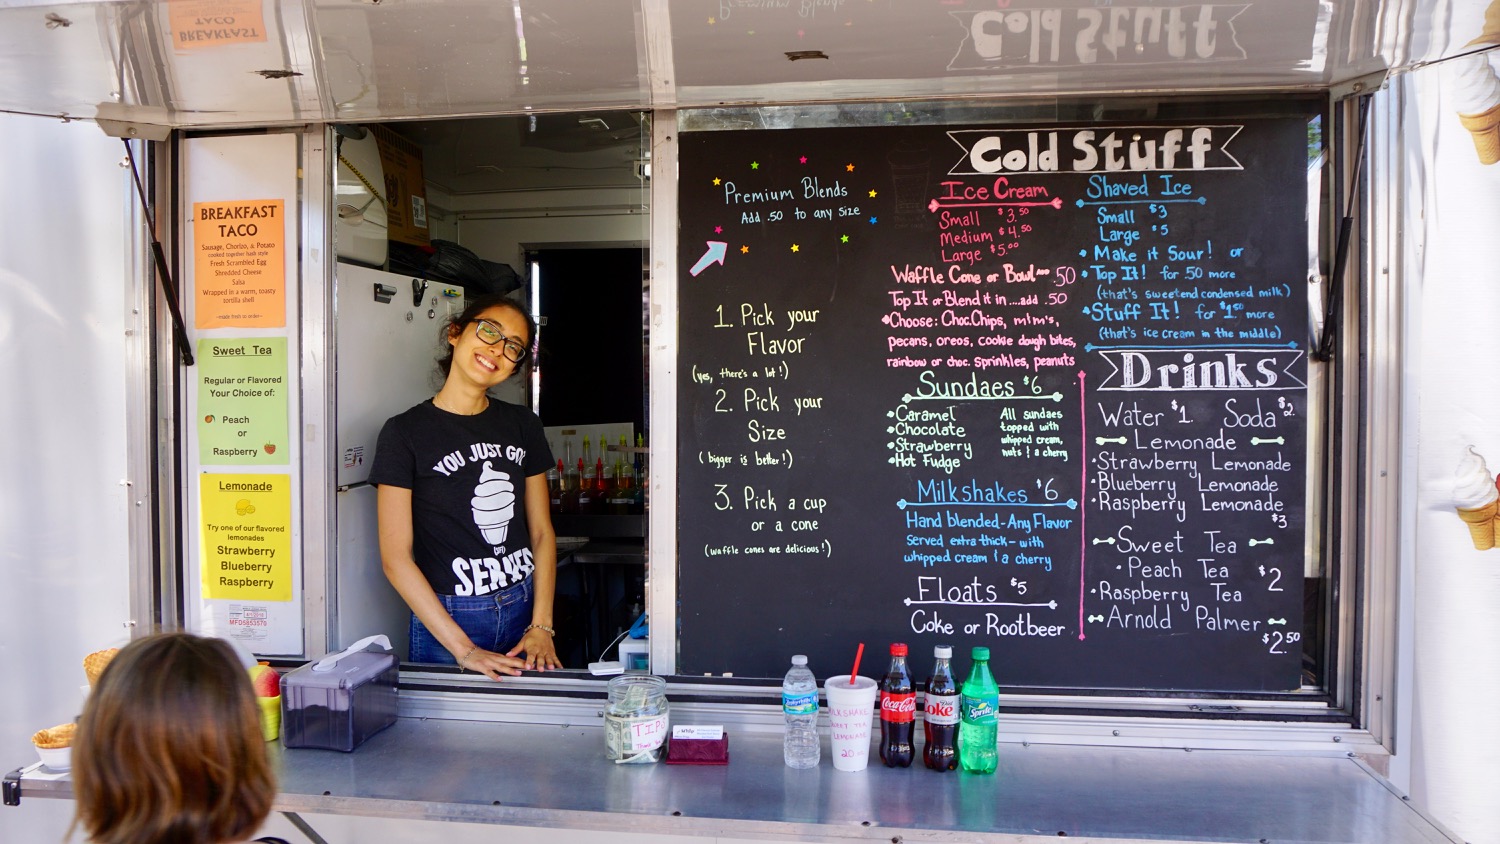 BREAKFAST
TACO
Cold Stuff
BREAKFAST
TACO
Sausage, Chorizo, & Potato
cooked together hash style
Fresh Scrambled Egg
Shredded Cheese
Salsa
Wrapped in a warm, toasty
tortilla shell
~made fresh to order~
Sweet Tea
Regular or Flavored
Your Choice of:
Peach
or
Raspberry
Lemonade
Try one of our flavored
lemonades
Strawberry
Blueberry
Raspberry
YOU JUST GOT
SERVED
Premium Blends
Add .50 to any size
1. Pick your
Flavor
(yes, there's a lot!)
2. Pick your
Size
(bigger is better!)
3. Pick a cup
or a cone
(waffle cones are delicious!)
Cold Stuff
Ice Cream
Small $3.50
Medium $4.50
Large $5.00
Waffle Cone or Bowl .50
Top It or Blend it in....add .50
Choose: Choc.Chips, m&m's,
pecans, oreos, cookie dough bites,
rainbow or choc. sprinkles, peanuts
Sundaes $6
Caramel
Chocolate
Strawberry
Hot Fudge
All sundaes
topped with
whipped cream,
nuts & a cherry
Milkshakes $6
Hand blended-Any Flavor
Served extra thick-with
whipped cream & a cherry
Floats $5
Coke or Rootbeer
Shaved Ice
Small $3
Large $5
Make it Sour! or
Top It! for .50 more
(that's sweetend condensed milk)
Stuff It! for $1.50 more
(that's ice cream in the middle)
Drinks
Water $1. Soda $2.
Lemonade
Strawberry Lemonade
Blueberry Lemonade
Raspberry Lemonade
$3
Sweet Tea
Peach Tea
Raspberry Tea
$2
Arnold Palmer
$2.50
TIPS
MILKSHAKE
SWEET TEA
LEMONADE
20 oz
Coca-Cola
Diet
Coke
Sprite